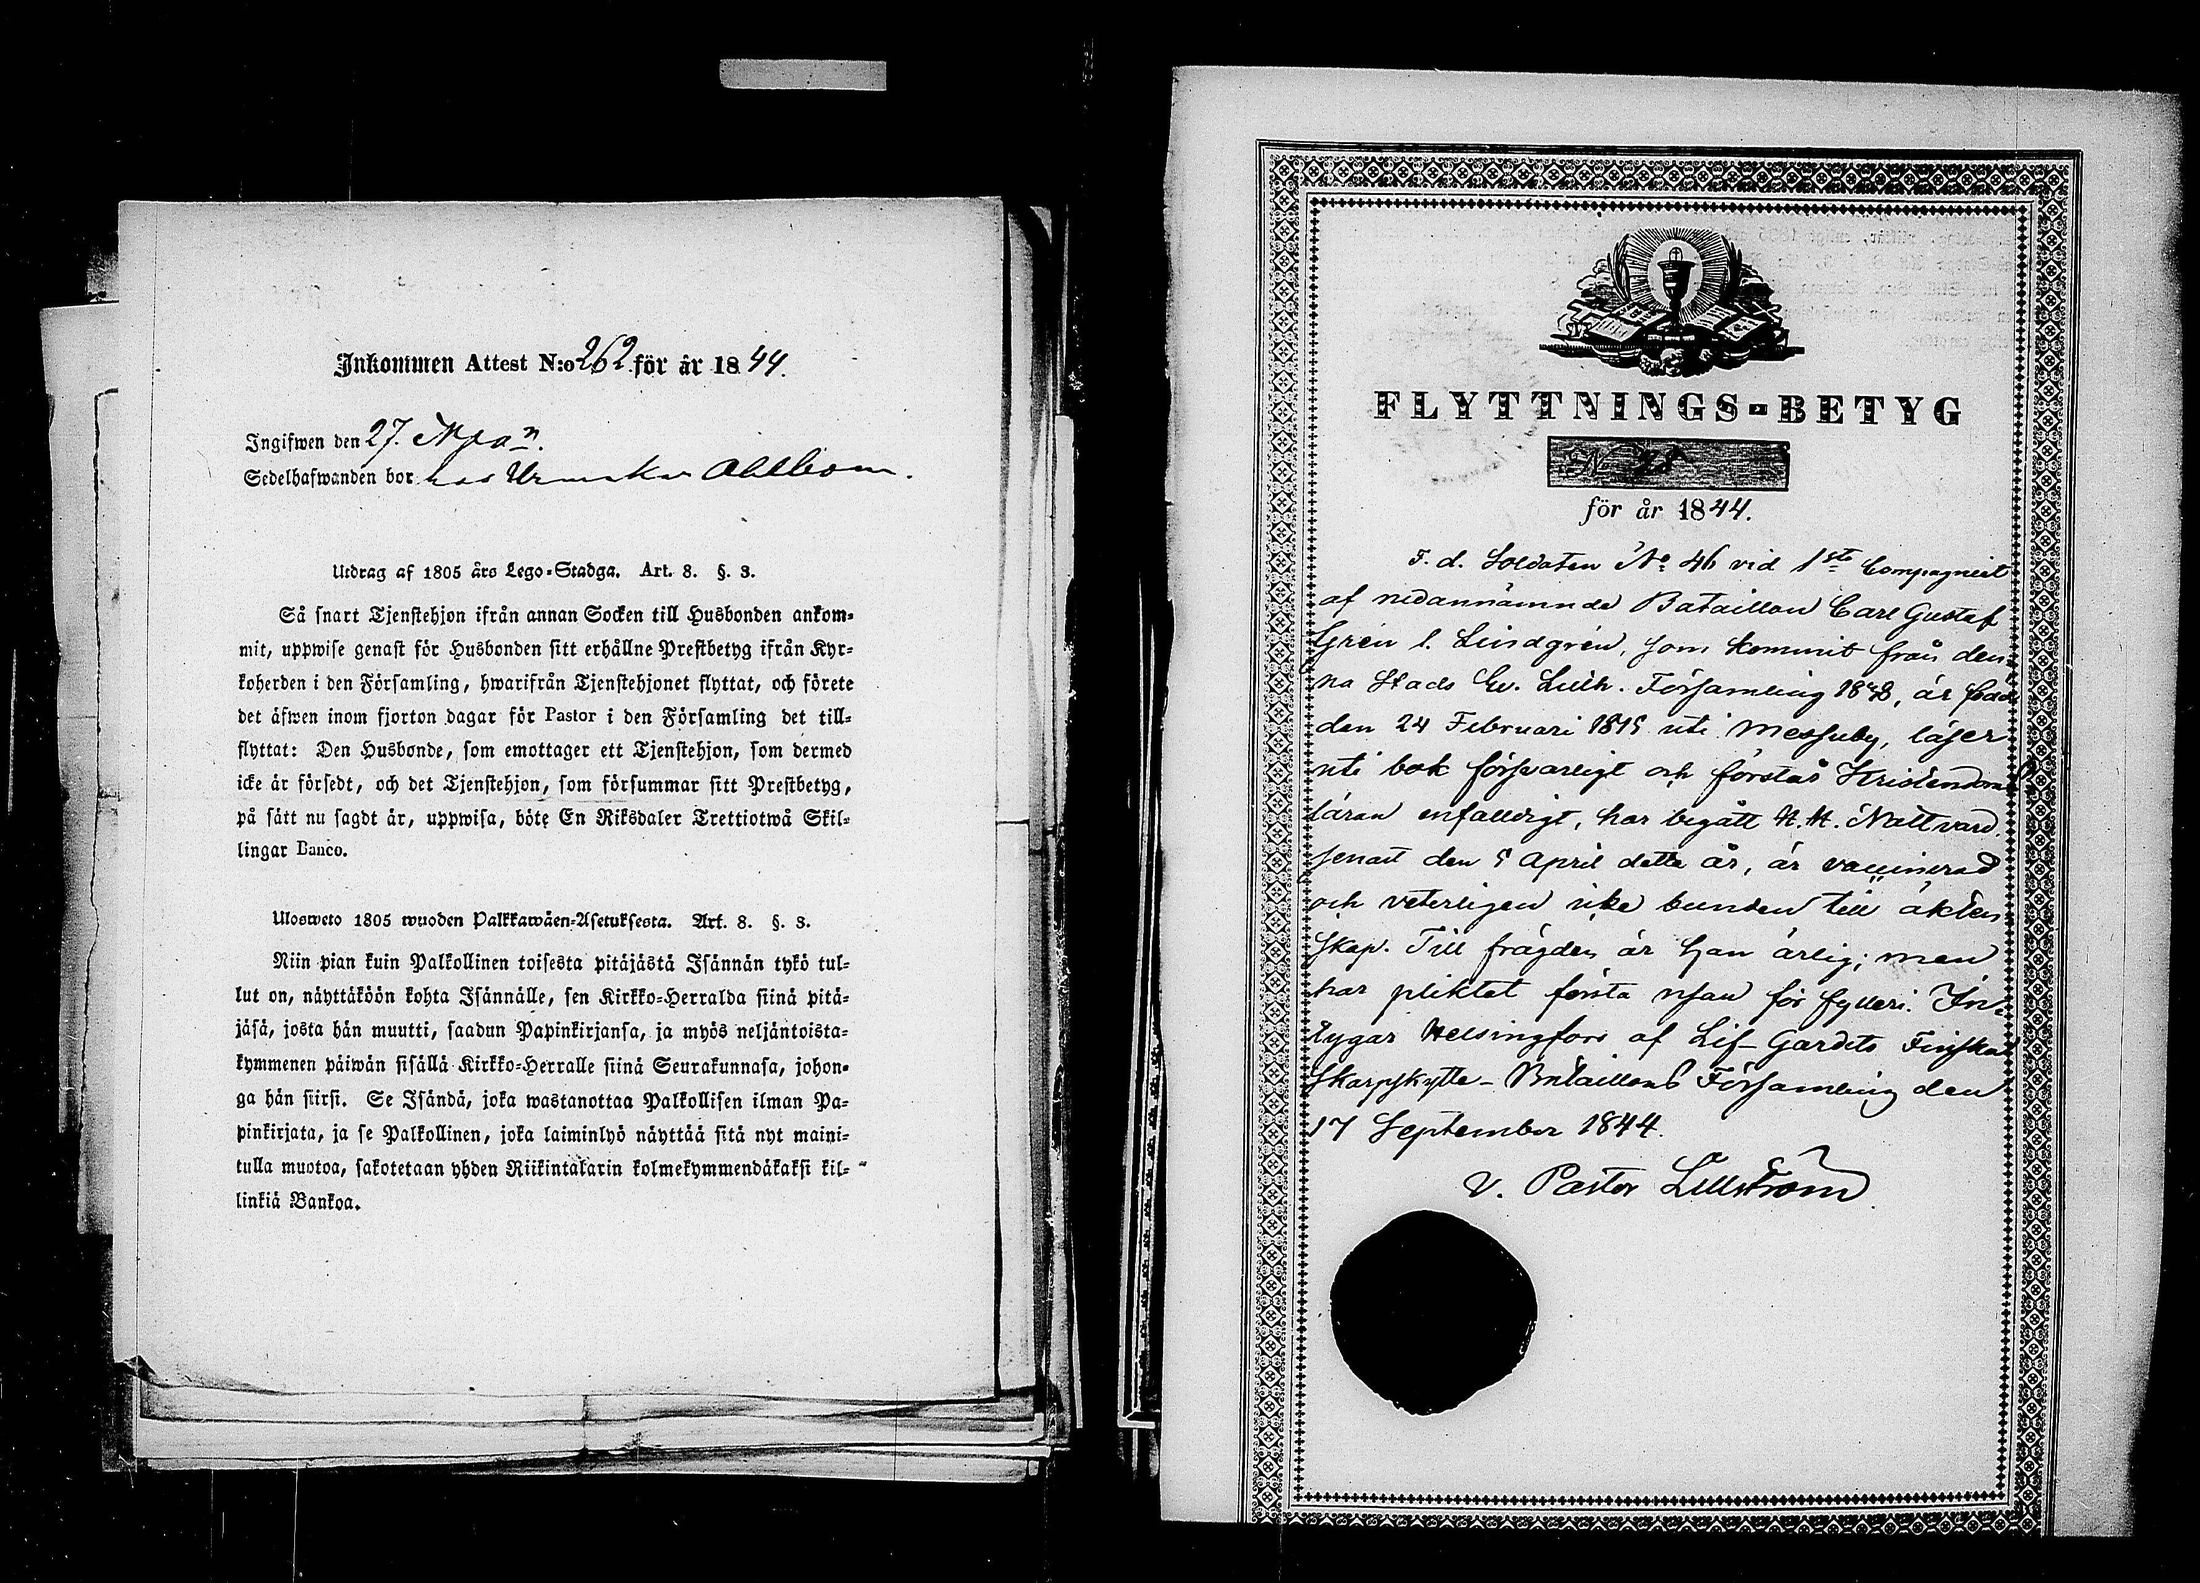 Inkommen Attest N:o 262 för år 1844.
Ingifwen den 27.
Sedelhafwanden bor hos Urmakar
Utdrag af 1805 års Lego-Stadga. Art. 8. §. 3.
Så snart Tjenstehjon ifrån annan Socken till Husbonden ankom-
mit, uppwise genast för Husbonden sitt erhållne Prestbetyg ifrån Kyr-
koherden i den Församling, hwarifrån Tjenstehjonet flyttat, och förete
det äfwen inom fjorton dagar för Pastor i den Församling det till-
flyttat: Den Husbonde, som emottager ett Tjenstehjon, som dermed
icke är försedt, och det Tjenstehjon, som försummar sitt Prestbetyg,
på sätt nu sagdt är, uppwisa, böte En Riksdaler Trettiotwå Skil-
lingar Banco.
Ulosweto 1805 wuoden Palkkawäen-Asetuksesta. Art. 8. §. 3.
Niin pian kuin Palkollinen toisesta pitäjästä Isännän tykö tul-
lut on, näyttäköön kohta Isännälle, sen Kirkko-Herralda siinä pitä-
jäsä, josta hän muutti, saadun Papinkirjansa, ja myös neljäntoista-
kymmenen päiwän sisällä Kirkko-Herralle siinä Seurakunnasa, johon-
ga hän siirsi. Se Isändä, joka wastanottaa Palkollisen ilman Pa-
pinkirjata, ja se Palkollinen, joka laiminlyö näyttää sitä nyt maini-
tulla muotoa, sakotetaan yhden Riikintalarin kolmekymmendäkaksi kil-
linkiä Bankoa.
FLYTTNINGS-BETYG
N 28
för år 1844.
F. d. Soldaten No 46 vid 1sta Compagniet
af nedannämnda Bataillon Carl Gustaf
Grén l. Lindgrén, som kommit från den-
na Stads Ev. Luth. Församling, är född
den 24 Februari 1815 uti Messuby, läser
uti bok försvarligt och förstår Kristendoms
läran enfalldigt, har begått H. H. Nattvard
senast den 5 April detta år, är vaccinerad
och veterligen icke bunden till äkten-
skap. Till frägden är han ärlig; men
har pliktat första resan för fylleri. In-
tygar Helsingfors af Lif-Gardets Finska
Skarpskytte-Bataillons Församling den
17 September 1844.
V. Pastor Lillström